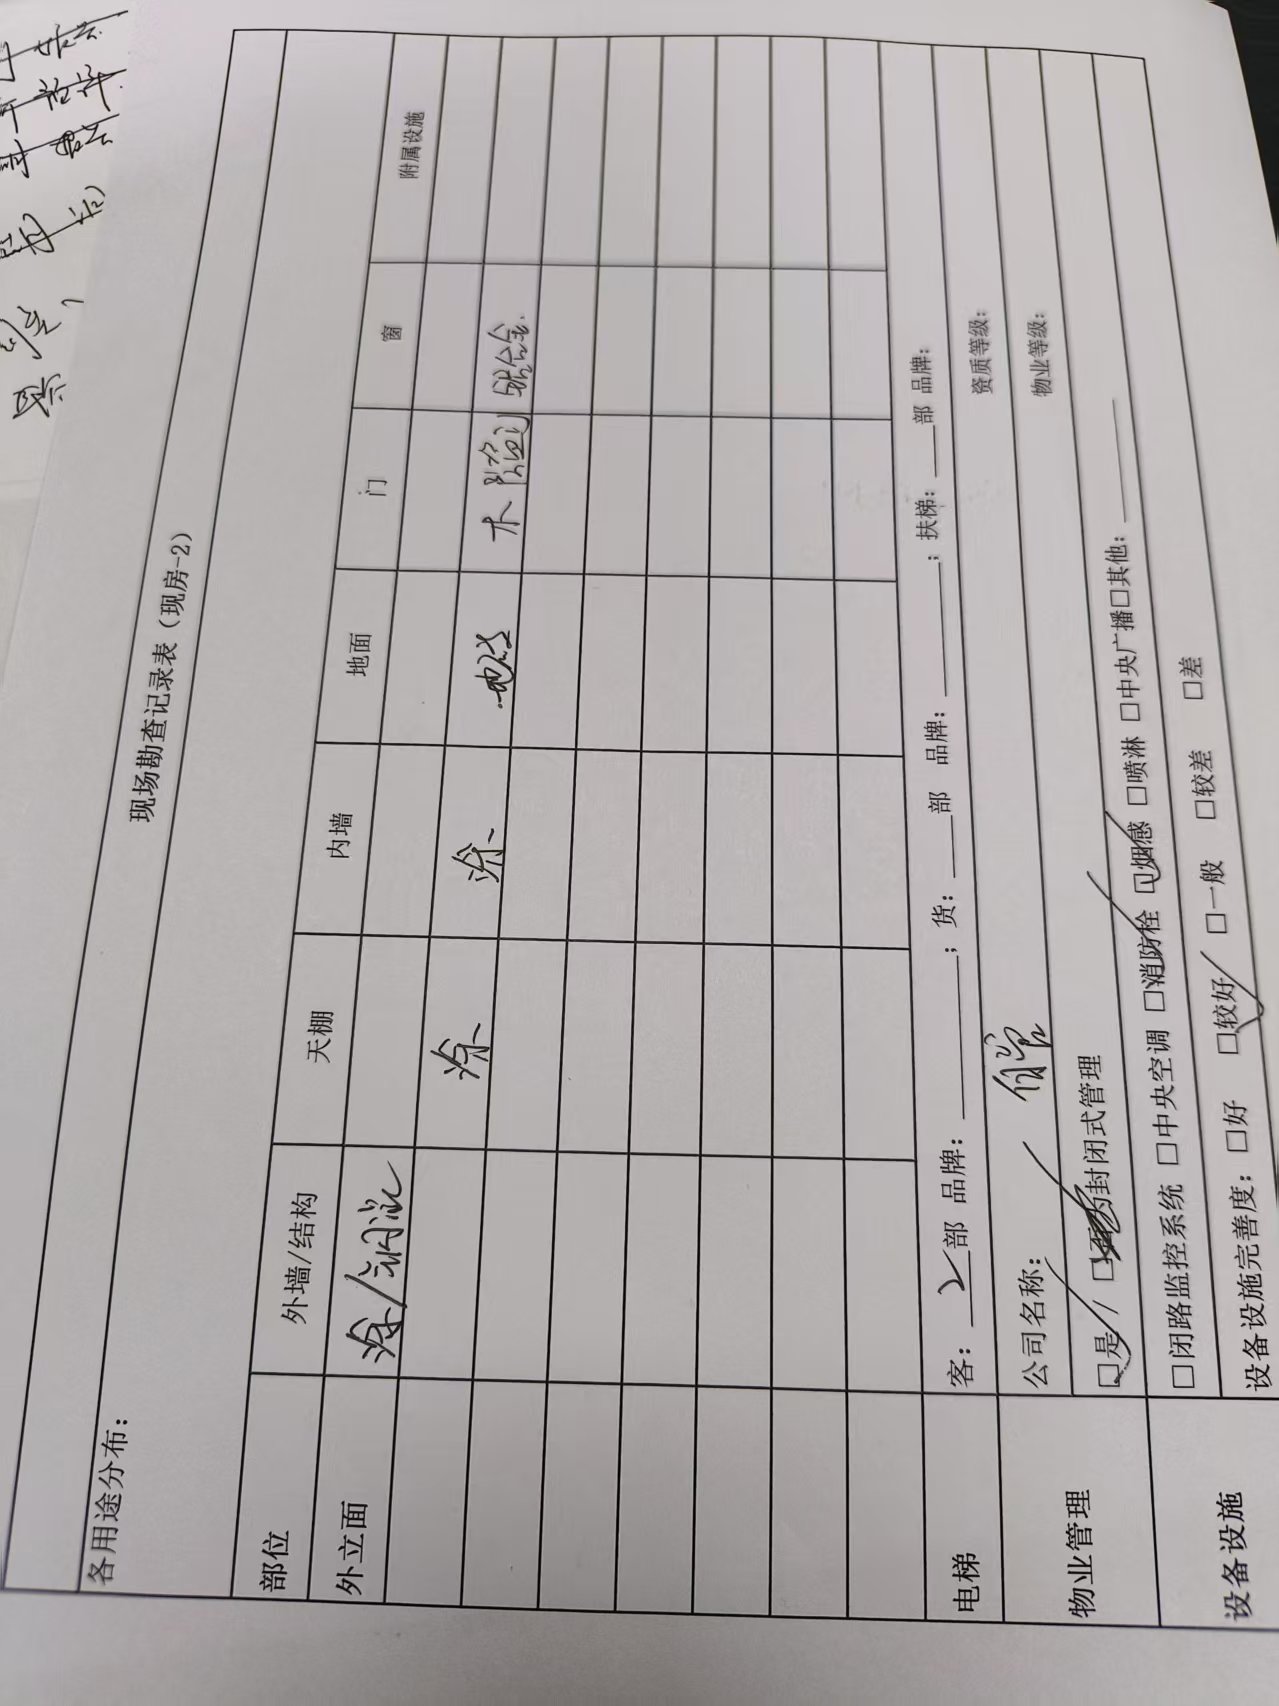 现场勘查记录表（现房-2）
各用途分布：
部位 外墙/结构 天棚 内墙 地面 门 窗 附属设施
外立面 涂/钢混
涂 涂 地砖 木 防盗门 铝合金
电梯 客：2部 品牌：______；货：___部 品牌：______；扶梯：___部 品牌：
物业管理 公司名称： 自管 资质等级：
□是/□否为封闭式管理 物业等级：
设备设施 □闭路监控系统 □中央空调 □消防栓 □烟感 □喷淋 □中央广播□其他：______
设备设施完善度：□好 □较好 □一般 □较差 □差